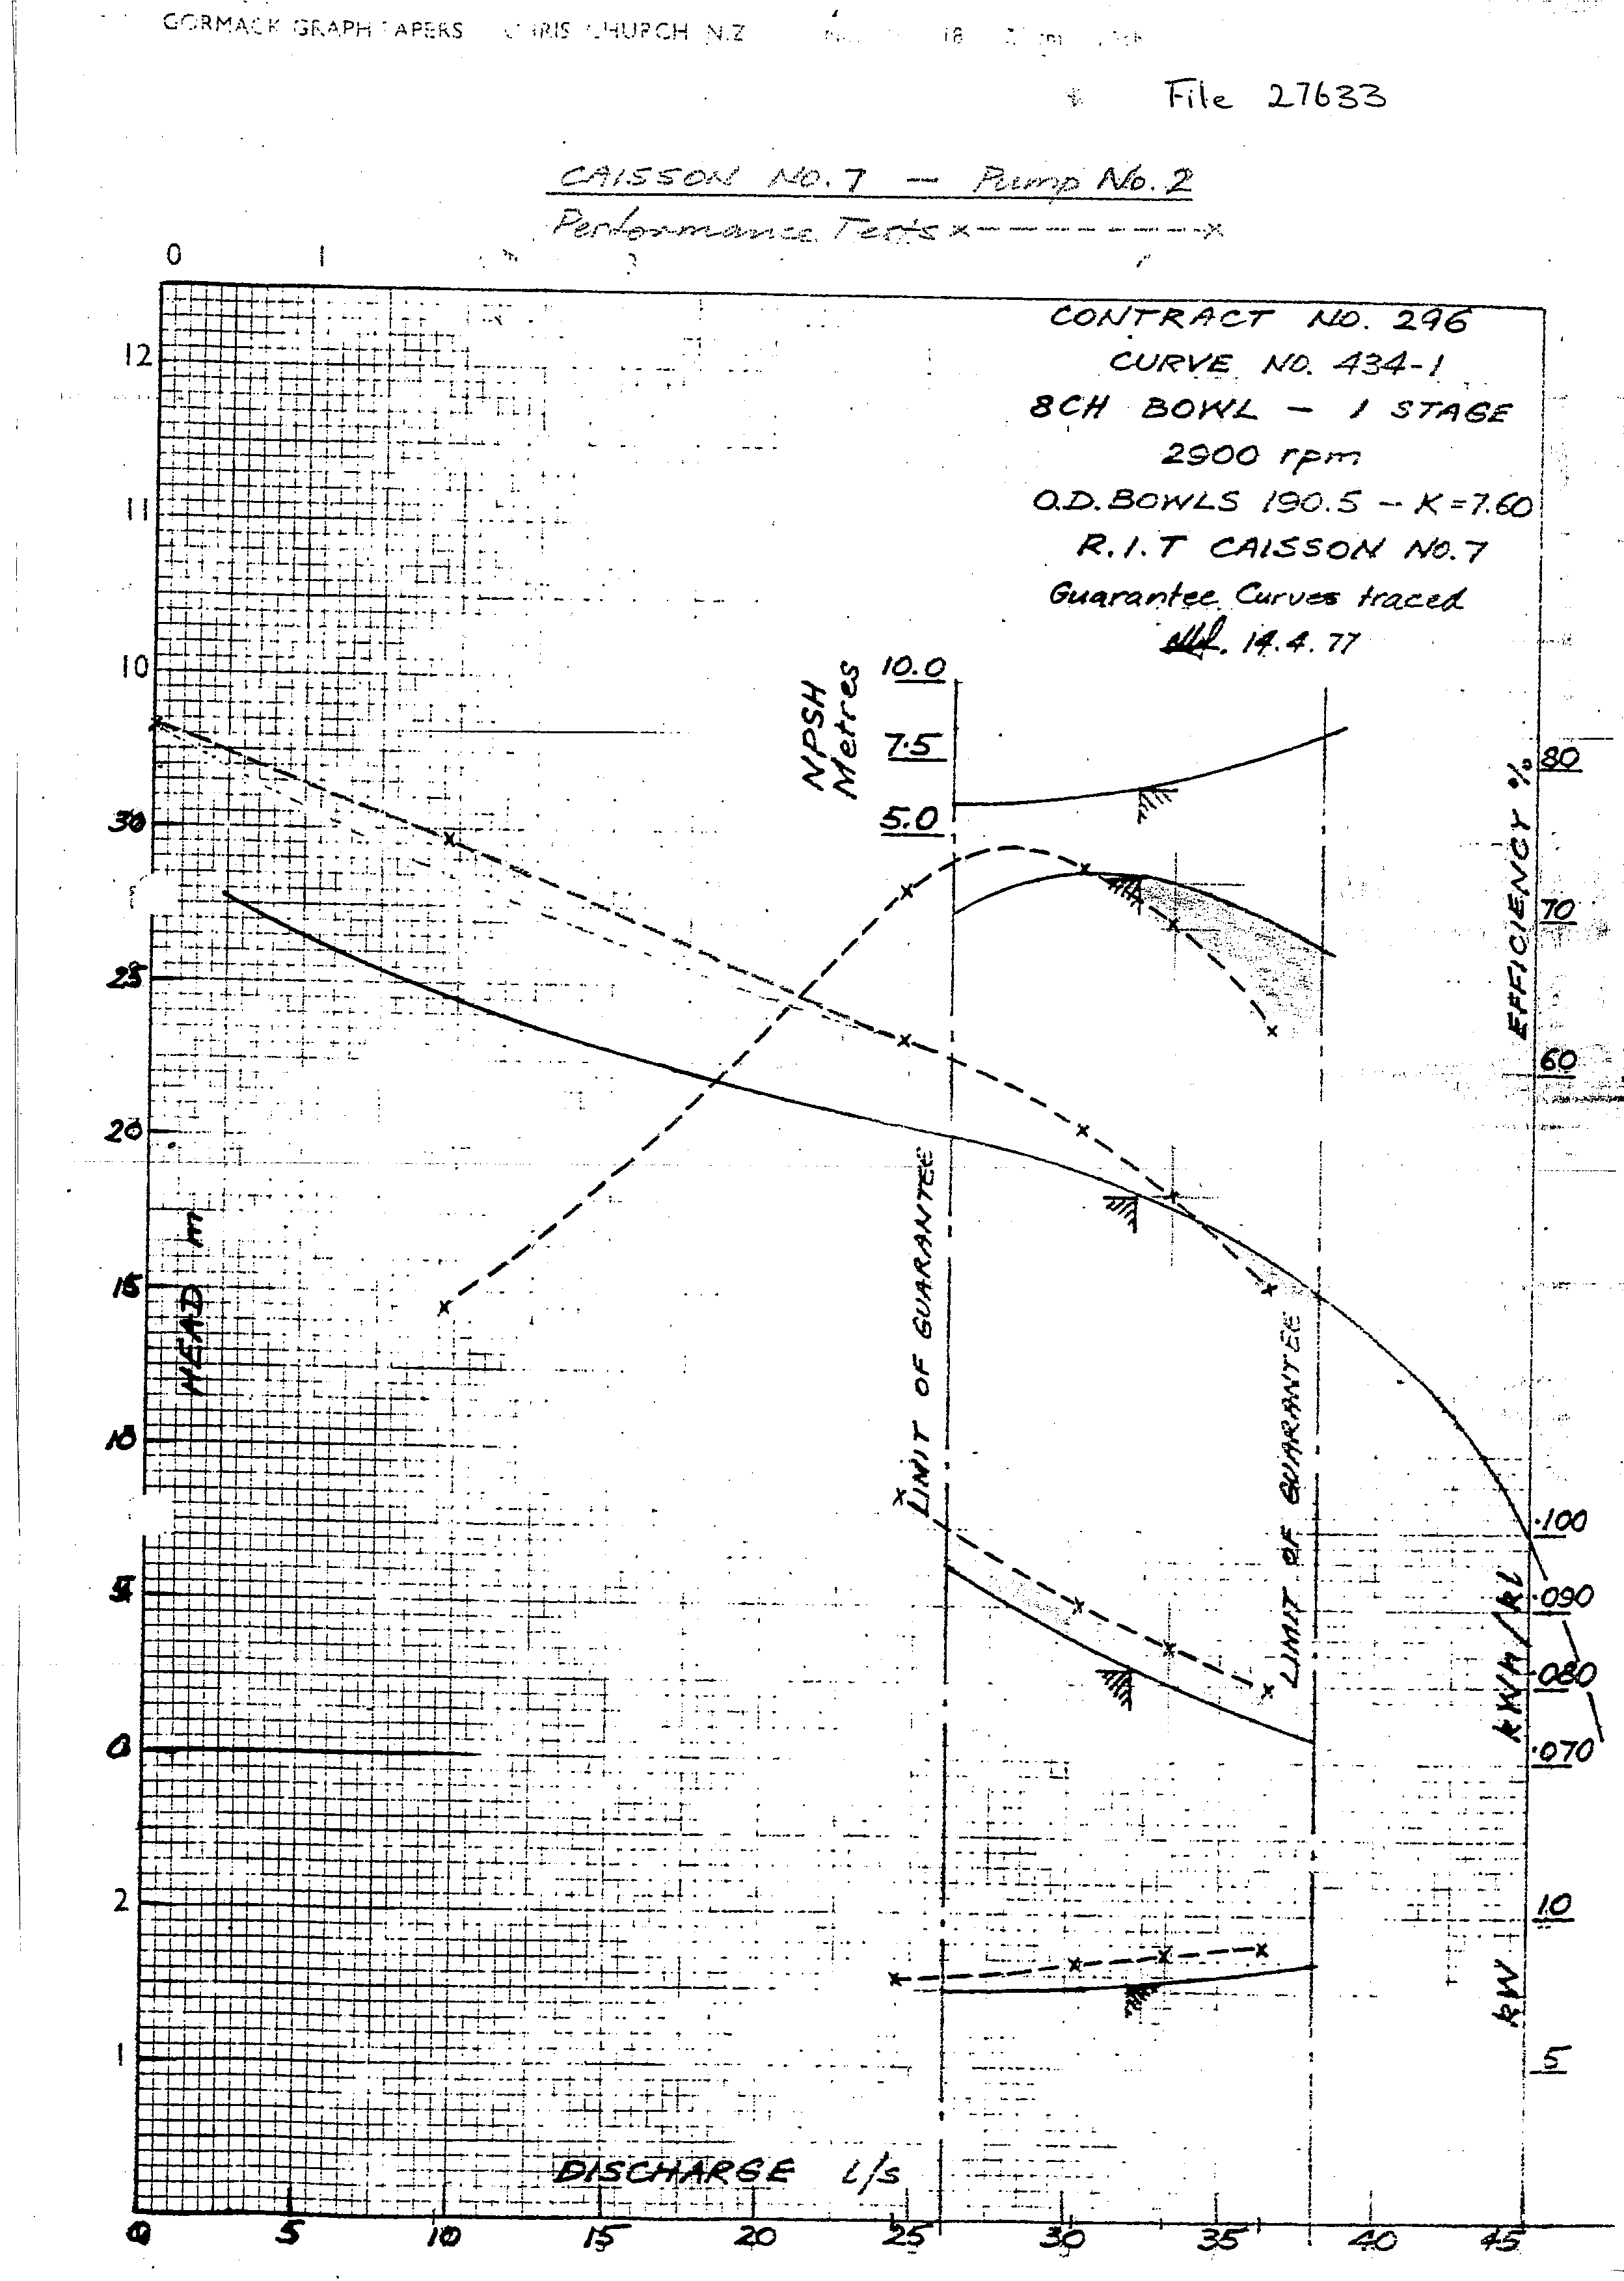 GORMACK GRAPH PAPERS CHRISTCHURCH N.Z
File 27633
CAISSON NO.7 — Pump No.2
Performance Tests x---------x
0 1
CONTRACT NO. 296
CURVE NO. 434-1
8CH BOWL - 1 STAGE
2900 rpm
O.D. BOWLS 190.5 - K=7.60
R.I.T CAISSON NO.7
Guarantee Curves traced
14.4.77
12
11
10
30
25
20
15
10
5
0
2
1
HEAD m
NPSH
Metres
10.0
7.5
5.0
EFFICIENCY %
80
70
60
LIMIT OF GUARANTEE
LIMIT OF GUARANTEE
kWh/kl
.100
.090
.080
.070
kW
10
5
DISCHARGE l/s
0 5 10 15 20 25 30 35 40 45